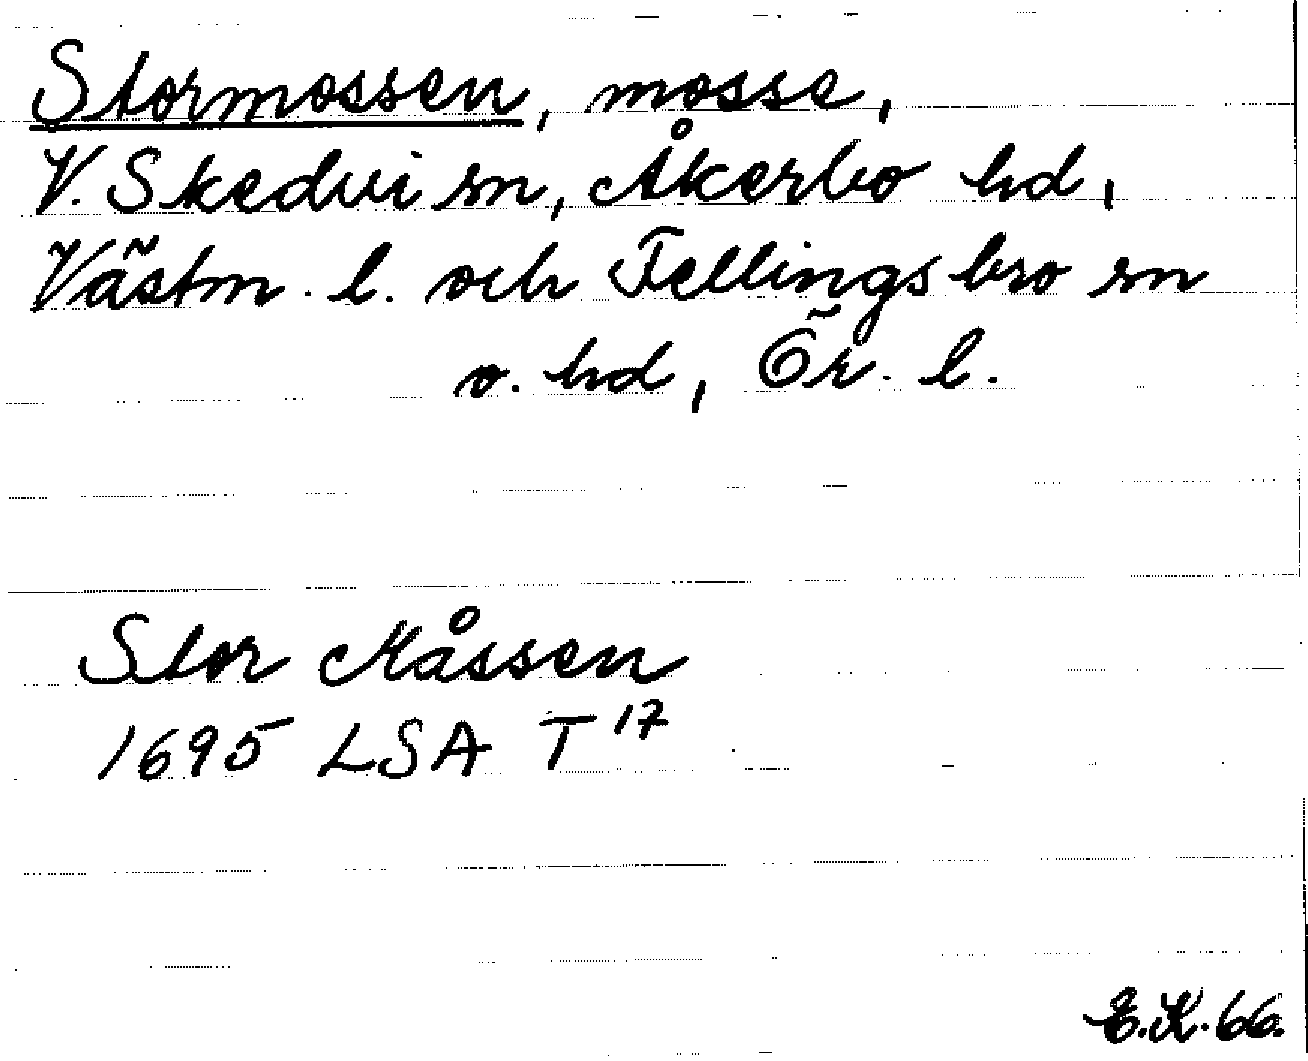 Stormossen, mosse,
V. Skedvi sn, Åkerbo hd,
Västm. l. och Fellingsbro sn
o. hd, Ör. l.
Stor Måssen
1695 LSA T 17
E.K. 66.